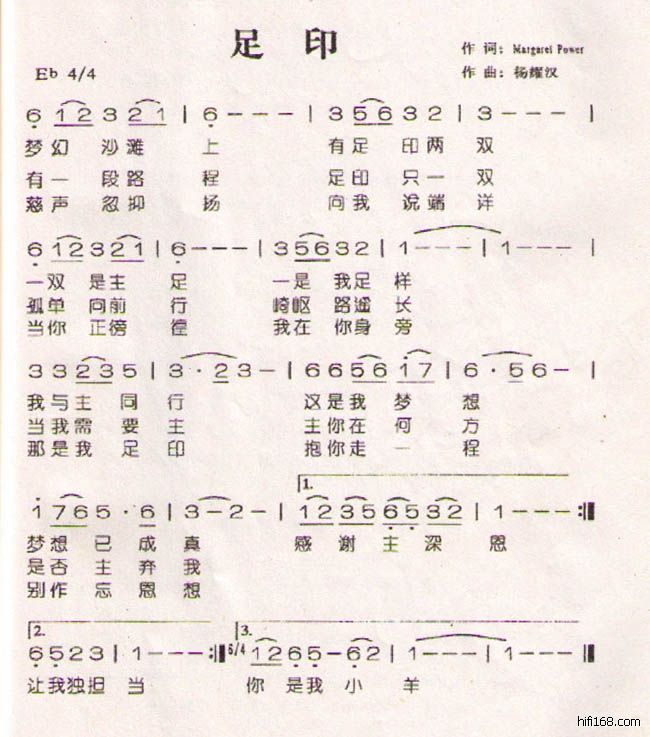 足 印
作 词: Margaret Power
Eb 4/4
作 曲: 杨耀汉
6 12 3 21 | 6 - - - | 3 56 32 | 3 - - - |
梦幻 沙滩 上 有足 印两 双
有一 段路 程 足印 只一 双
慈声 忽抑 扬 向我 说端 详
6 12 3 21 | 6 - - - | 3 56 32 | 1 - - - | 1 - - - |
一双 是主 足 一是 我足 样
孤单 向前 行 崎岖 路遥 长
当你 正徬 徨 我在 你身 旁
3 3 23 5 | 3 · 23 - | 6 6 56 17 | 6 · 56 - |
我与主 同行 这是我 梦 想
当我需 要主 主你在 何 方
那是我 足印 抱你走 一 程
1.
1 76 5 · 6 | 3 - 2 - | 12 35 65 32 | 1 - - - :||
梦想 已 成 真 感 谢 主 深 恩
是否 主 弃 我
别作 忘 恩 想
2. 3.
6 5 2 3 | 1 - - - :|| 6/4 12 6 5 - 62 | 1 - - - | 1 - - - ||
让我独担 当 你 是我 小 羊
hifi168.com